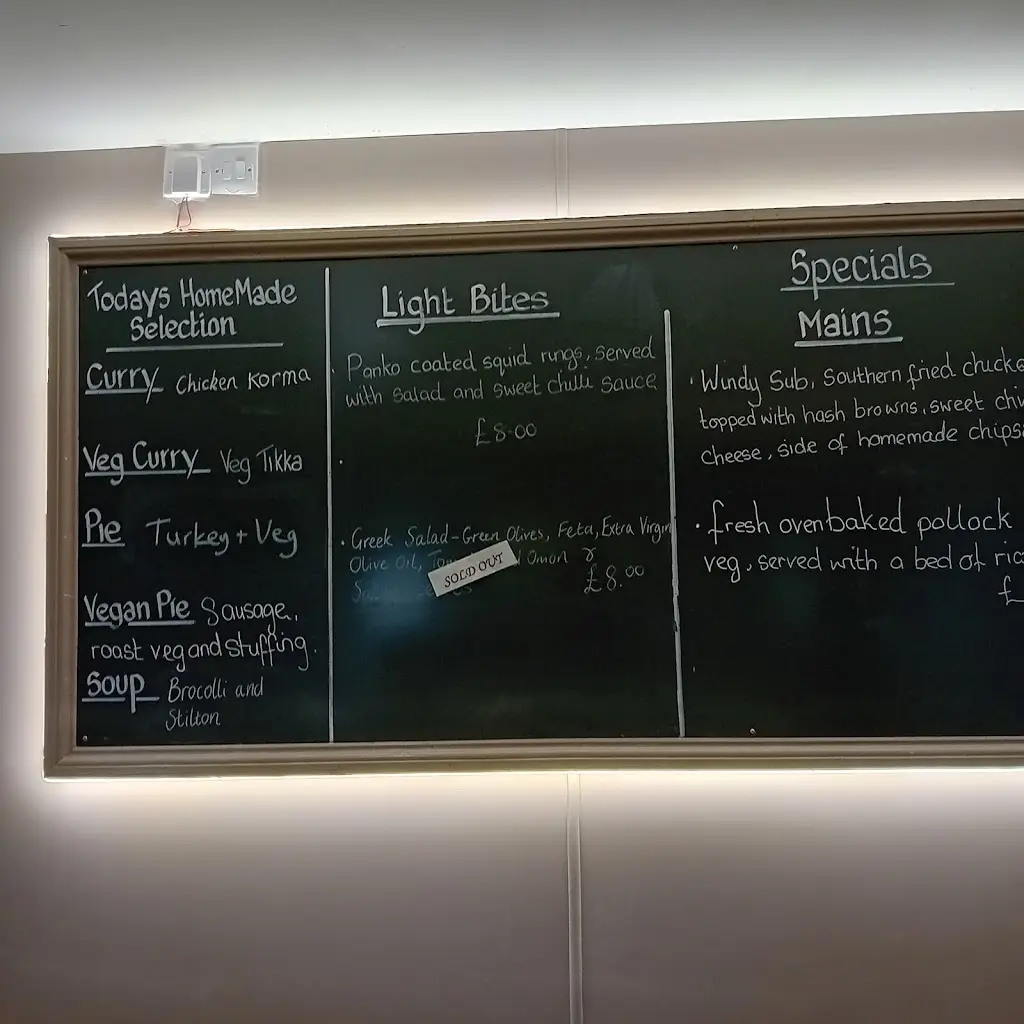 Todays HomeMade
Selection
Curry Chicken Korma
Veg Curry Veg Tikka
Pie Turkey + Veg
Vegan Pie Sausage,
roast veg and stuffing.
Soup Brocolli and
Stilton
Light Bites
Panko coated squid rings, served
with salad and sweet chilli sauce
£8.00
Greek Salad - Green Olives, Feta, Extra Virgin
Olive Oil, Onion &
SOLD OUT
£8.00
Specials
Mains
Windy Sub, Southern fried
topped with hash browns, sweet
cheese, side of homemade chips
fresh ovenbaked pollock
veg, served with a bed of
£